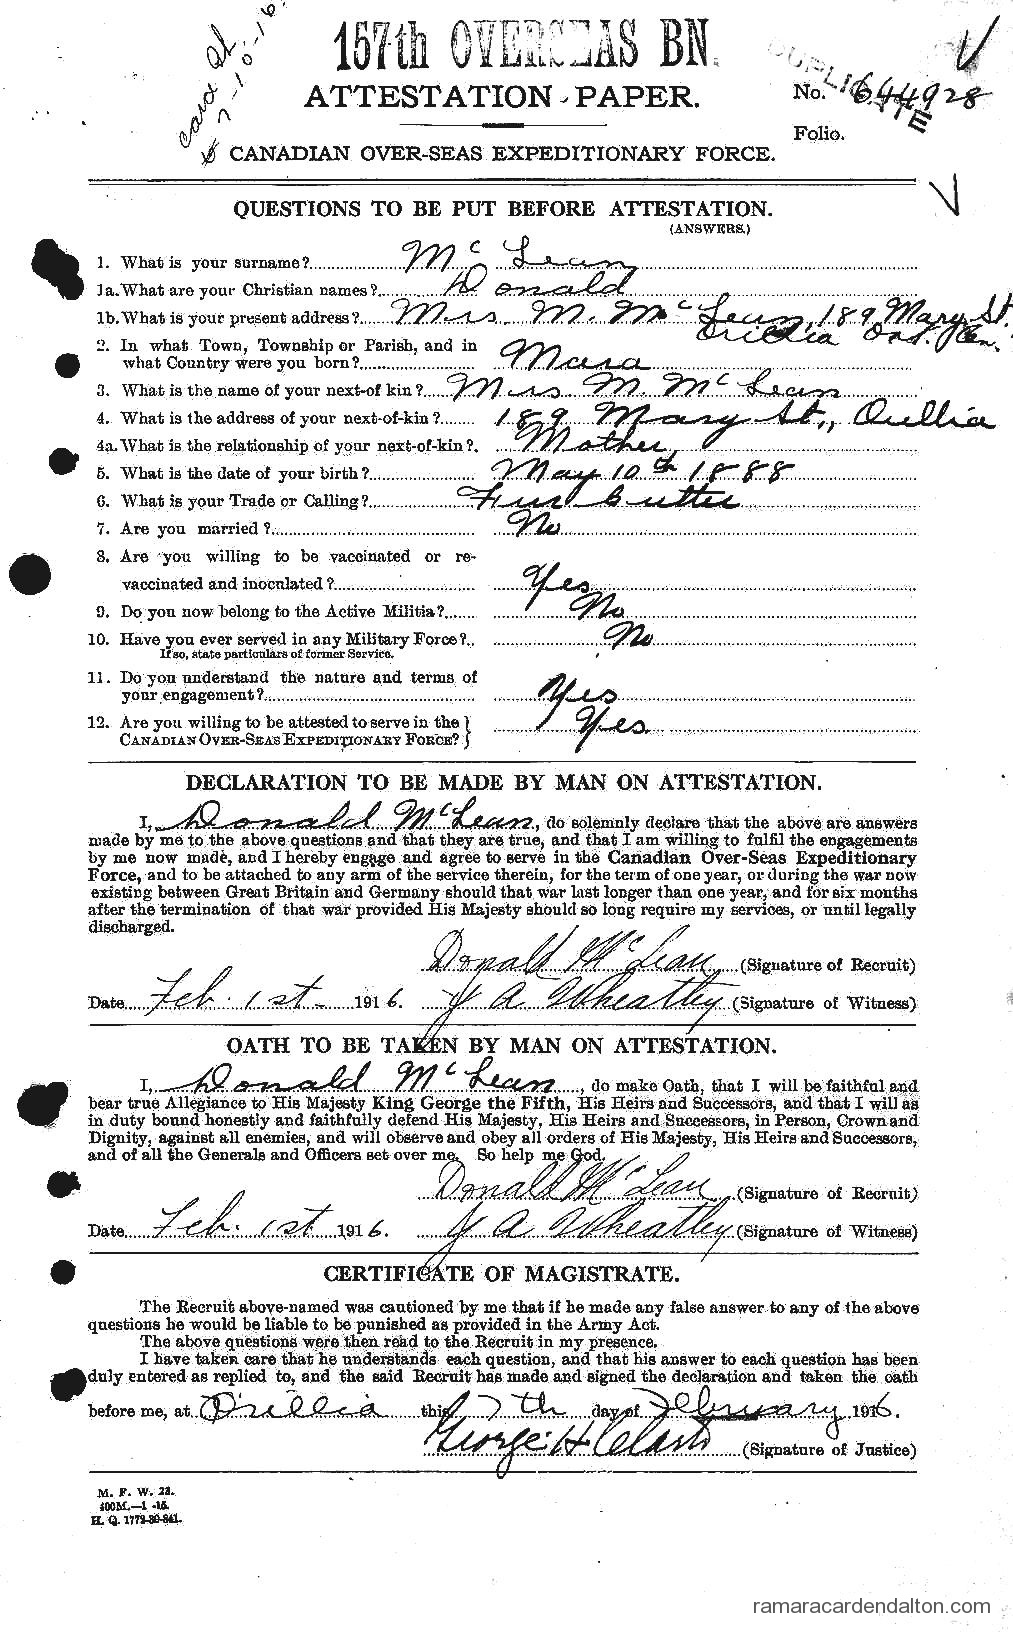 card A.
7-10-16.
157th OVERSEAS BN.
DUPLICATE
ATTESTATION PAPER.
No. 644928
Folio.
CANADIAN OVER-SEAS EXPEDITIONARY FORCE.
QUESTIONS TO BE PUT BEFORE ATTESTATION.
(ANSWERS.)
1. What is your surname? McLean
1a. What are your Christian names? Donald
1b. What is your present address? Mrs. M. McLean, 189 Mary St.
Orillia Ont. Can.
2. In what Town, Township or Parish, and in
what Country were you born? Mara
3. What is the name of your next-of kin? Mrs M. McLean
4. What is the address of your next-of-kin? 189 Mary St., Orillia
4a. What is the relationship of your next-of-kin? Mother
5. What is the date of your birth? May 10th 1888
6. What is your Trade or Calling? Fur Cutter
7. Are you married? No
8. Are you willing to be vaccinated or re-
vaccinated and inoculated? Yes
9. Do you now belong to the Active Militia? No
10. Have you ever served in any Military Force? No
If so, state particulars of former Service.
11. Do you understand the nature and terms of
your engagement? Yes
12. Are you willing to be attested to serve in the
CANADIAN OVER-SEAS EXPEDITIONARY FORCE? Yes.
DECLARATION TO BE MADE BY MAN ON ATTESTATION.
I, Donald McLean, do solemnly declare that the above are answers
made by me to the above questions and that they are true, and that I am willing to fulfil the engagements
by me now made, and I hereby engage and agree to serve in the Canadian Over-Seas Expeditionary
Force, and to be attached to any arm of the service therein, for the term of one year, or during the war now
existing between Great Britain and Germany should that war last longer than one year, and for six months
after the termination of that war provided His Majesty should so long require my services, or until legally
discharged.
Donald McLean (Signature of Recruit)
Date Feb. 1st 1916. J A Wheatley (Signature of Witness)
OATH TO BE TAKEN BY MAN ON ATTESTATION.
I, Donald McLean, do make Oath, that I will be faithful and
bear true Allegiance to His Majesty King George the Fifth, His Heirs and Successors, and that I will as
in duty bound honestly and faithfully defend His Majesty, His Heirs and Successors, in Person, Crown and
Dignity, against all enemies, and will observe and obey all orders of His Majesty, His Heirs and Successors,
and of all the Generals and Officers set over me. So help me God.
Donald McLean (Signature of Recruit)
Date Feb. 1st 1916. J A Wheatley (Signature of Witness)
CERTIFICATE OF MAGISTRATE.
The Recruit above-named was cautioned by me that if he made any false answer to any of the above
questions he would be liable to be punished as provided in the Army Act.
The above questions were then read to the Recruit in my presence.
I have taken care that he understands each question, and that his answer to each question has been
duly entered as replied to, and the said Recruit has made and signed the declaration and taken the oath
before me, at Orillia this 7th day of February 1916.
George H Clark (Signature of Justice)
M. F. W. 23.
400M.—1-15.
H. Q. 1772-39-841.
ramaracardendalton.com